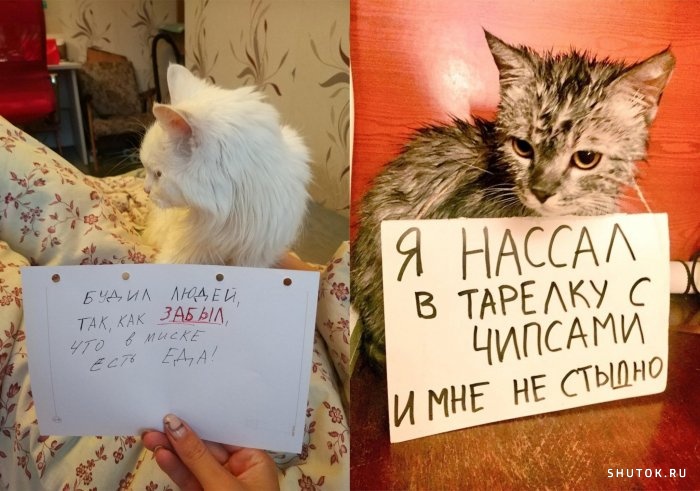 БУДИЛ ЛЮДЕЙ,
ТАК, КАК ЗАБЫЛ,
ЧТО В МИСКЕ
ЕСТЬ ЕДА!
Я НАССАЛ
В ТАРЕЛКУ С
ЧИПСАМИ
И МНЕ НЕ СТЫДНО
SHUTOK.RU